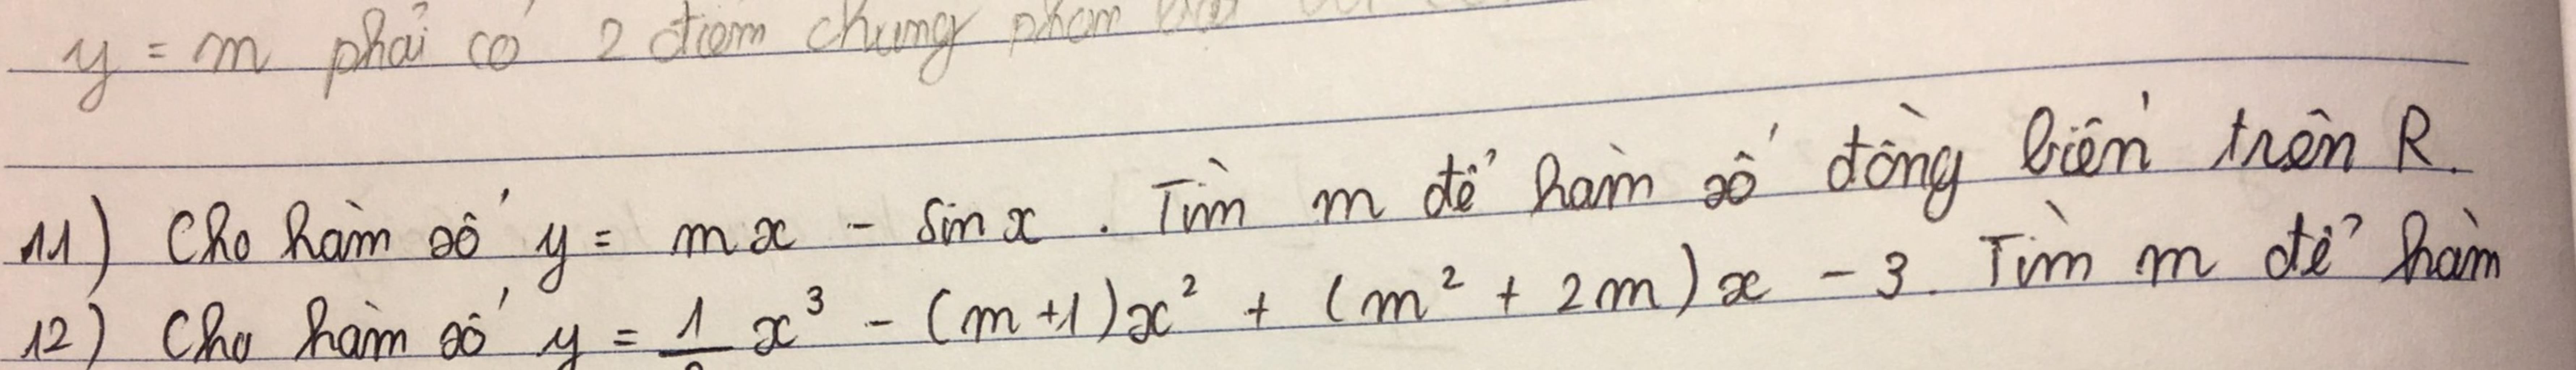 y = m phải có 2 điểm chung phân
11) Cho hàm số y = mx - sinx. Tìm m để hàm số đồng biến trên R.
12) Cho hàm số y = 1/ x³ - (m+1)x² + (m² + 2m)x - 3. Tìm m để hàm